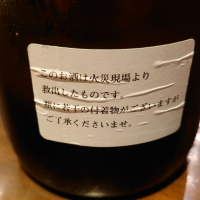 このお酒は火災現場より
救出したものです。
瓶に若干の付着物がございますが
ご了承くださいませ。